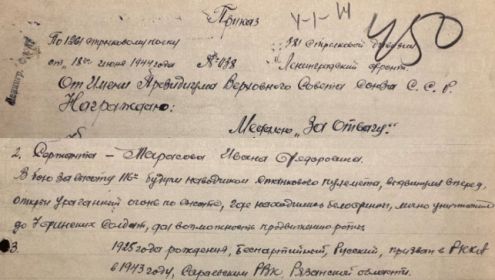 Приказ
По 1261 стрелковому полку 381 стрелковой дивизии
от 18го июня 1944 года № 038 Ленинградский фронт
450
От Имени Президиума Верховного Совета Союза С.С.Р.
Награждаю:
Медалью „За Отвагу“
2. Сержанта – Тарасова Ивана Федоровича.
В бою за высоту 116 будучи наводчиком станкового пулемета, выдвинулся вперед,
открыл ураганный огонь по высоте, где находились белофинны, лично уничтожил
до 7 финских солдат, дал возможность продвижению роты
3. 1925 года рождения, беспартийный, русский, призван в РККА
в 1943 году, Сараевским РВК Рязанской области.